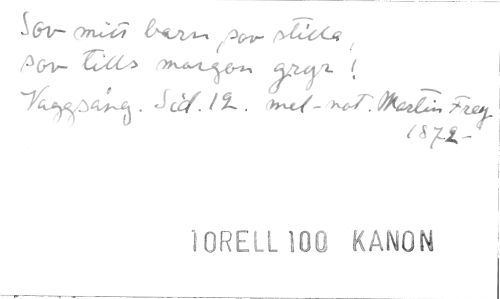 Sov mitt barn sov stilla,
sov tills morgon gryr!
Vaggsång. Sid. 12. mel-not. Martin Frey
1872-
TORELL 100 KANON